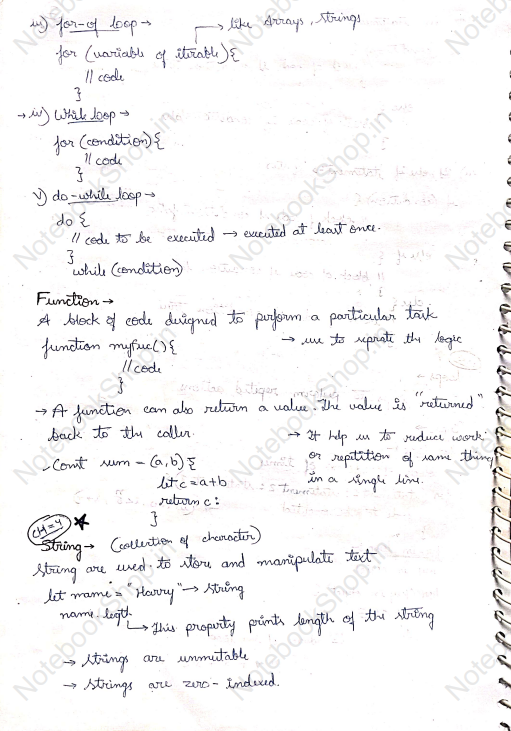 iii) for-of loop → → like Arrays, strings
for (variable of iterable){
// code
}
→ iv) While loop →
for (condition){
// code
}
v) do-while loop →
do {
// code to be executed → executed at least once.
}
while (condition)
Function →
A block of code designed to perform a particular task
function myfuc(){ → use to seprate the logic
//code
}
→ A function can also return a value. The value is "returned"
back to the caller. → It help us to reduce work
or repitition of same thing
Const sum = (a,b){ in a single line.
let c = a+b
return c;
}
CH=4 ★
String → (collection of character)
String are used to store and manipulate text
let name = "Harry" → String
name.legth
→ This property prints length of the string
→ Strings are unmutable
→ Strings are zero-indexed.
NotebookShop.in